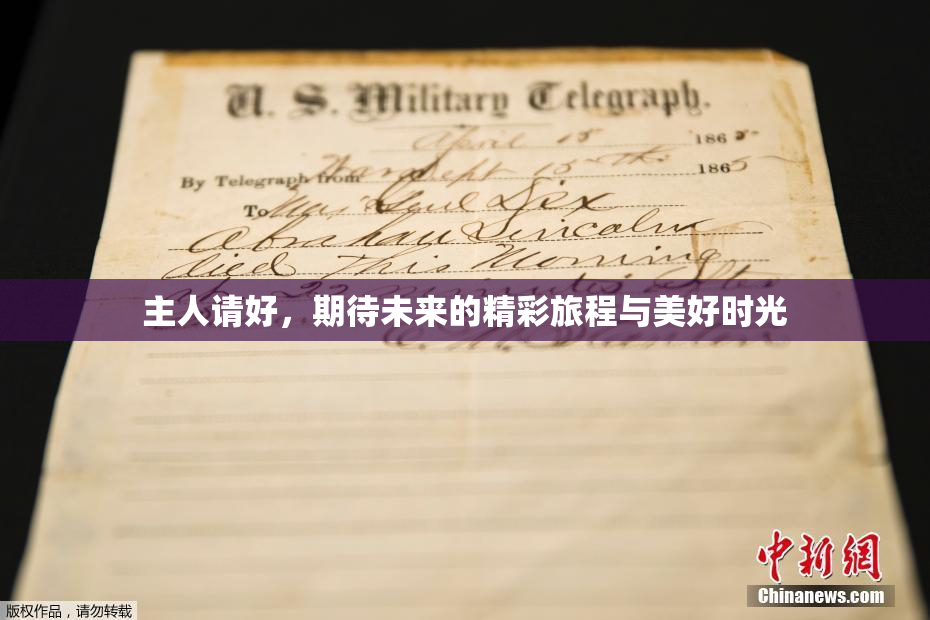 U. S. Military Telegraph.
April 15 1865
By Telegraph from War Dept 15th 1865
To Maj Genl Dix
Abraham Lincoln
died This Morning
22 minutes after
主人请好，期待未来的精彩旅程与美好时光
中新網
Chinanews.com
版权作品，请勿转载